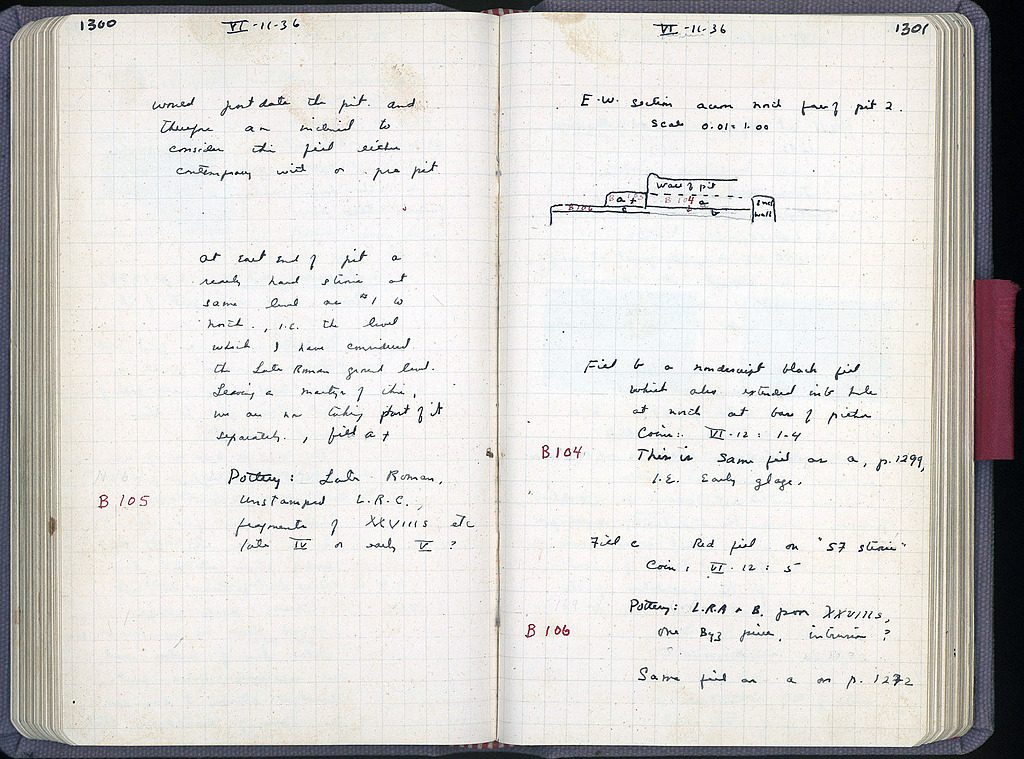 1300
VI-11-36
would postdate the pit. and
therefore am inclined to
consider this fill either
contemporary with or pre pit
at East End of pit a
nearly hard strosis at
same level as #1 to
north., i.e. the level
which I have considered
the Late Roman ground level.
Leaving a martyr of this,
we are now taking part of it
separately., fill a+
B 105
Pottery: Late Roman,
unstamped L.R.C.,
fragments of XXVIIIs etc
late IV or early V ?
VI-11-36
1301
E-W. section across north face of pit 2.
Scale 0.01=1.00
wall of pit
a+
B 104 a
B 106
c
b
b
End wall
Fill b a nondescript black fill
which also extended into hole
at north at base of
Coins: VI-12: 1-4
B 104
This is same fill as a, p. 1299,
I.E. Early glaze.
Fill c Red fill on "57 strosis"
Coin, VI-12: 5
Pottery: L.R.A + B. poor XXVIIIs,
B 106
one Byz piece, intrusion ?
Same fill as a on p. 1272